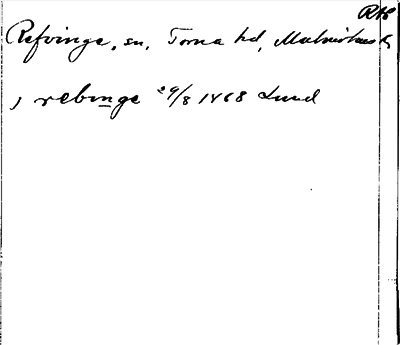 RAP
Refvinge, sn, Torna hd, Malmöhus l.
, rebinge 29/8 1468 Lund